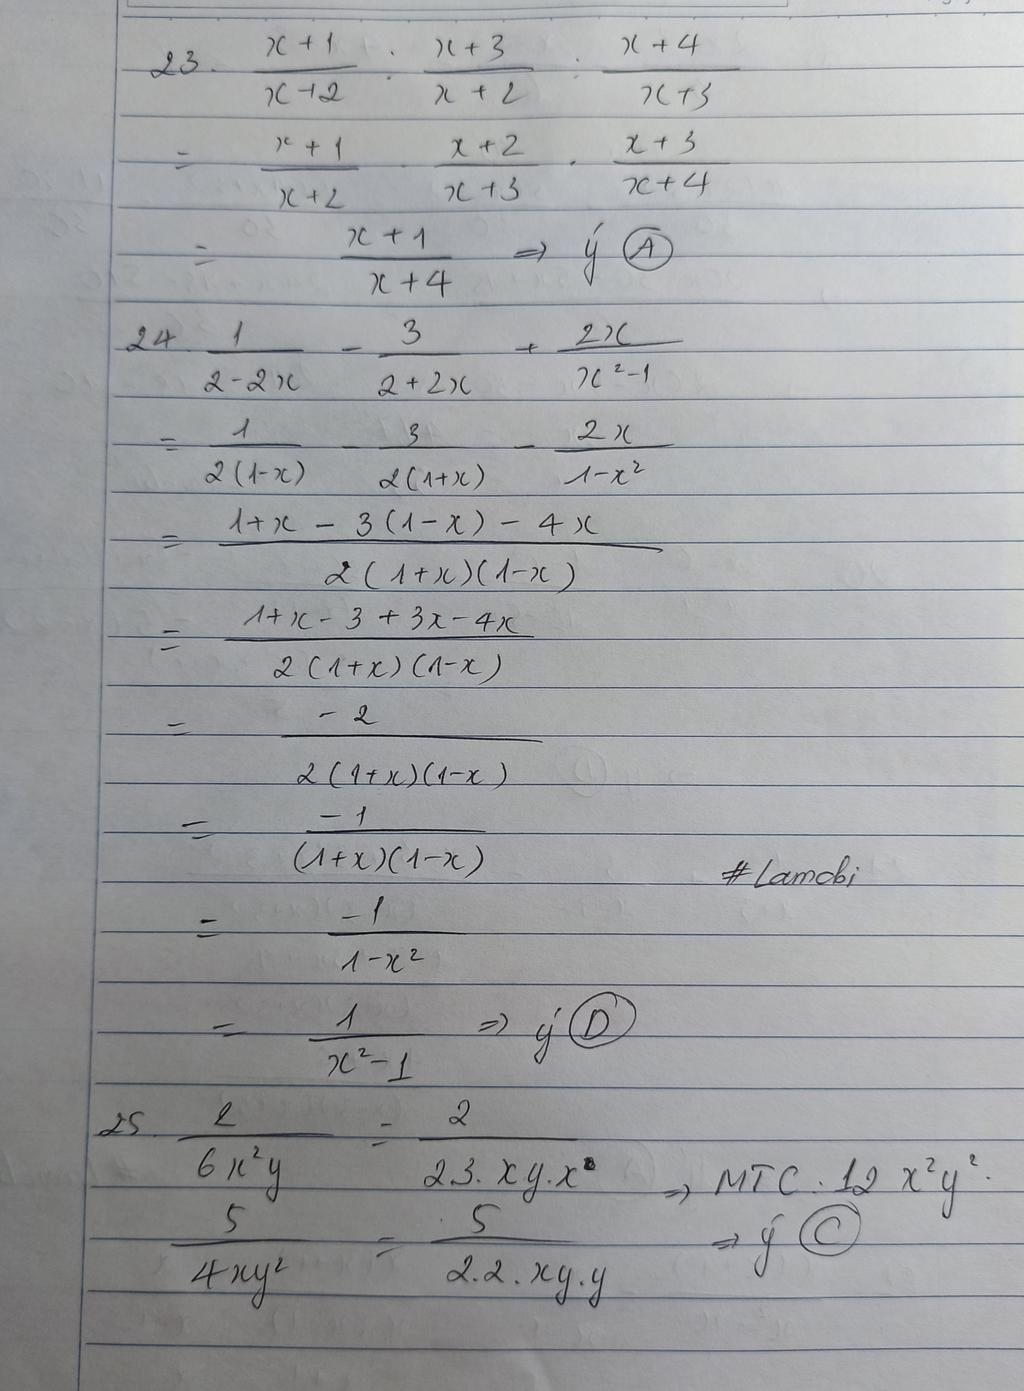 23. \frac{x+1}{x+2} : \frac{x+3}{x+2} : \frac{x+4}{x+3}
= \frac{x+1}{x+2} . \frac{x+2}{x+3} . \frac{x+3}{x+4}
= \frac{x+1}{x+4} => ý (A)
24 \frac{1}{2-2x} - \frac{3}{2+2x} + \frac{2x}{x²-1}
= \frac{1}{2(1-x)} - \frac{3}{2(1+x)} - \frac{2x}{1-x²}
= \frac{1+x - 3(1-x) - 4x}{2(1+x)(1-x)}
= \frac{1+x-3+3x-4x}{2(1+x)(1-x)}
= \frac{-2}{2(1+x)(1-x)}
= \frac{-1}{(1+x)(1-x)}
#Lamobi
= \frac{-1}{1-x²}
= \frac{1}{x²-1} => ý (D)
25. \frac{2}{6x²y} = \frac{2}{2.3.xy.x} => MTC: 12x²y².
\frac{5}{4xy²} = \frac{5}{2.2.xy.y} => ý (C)